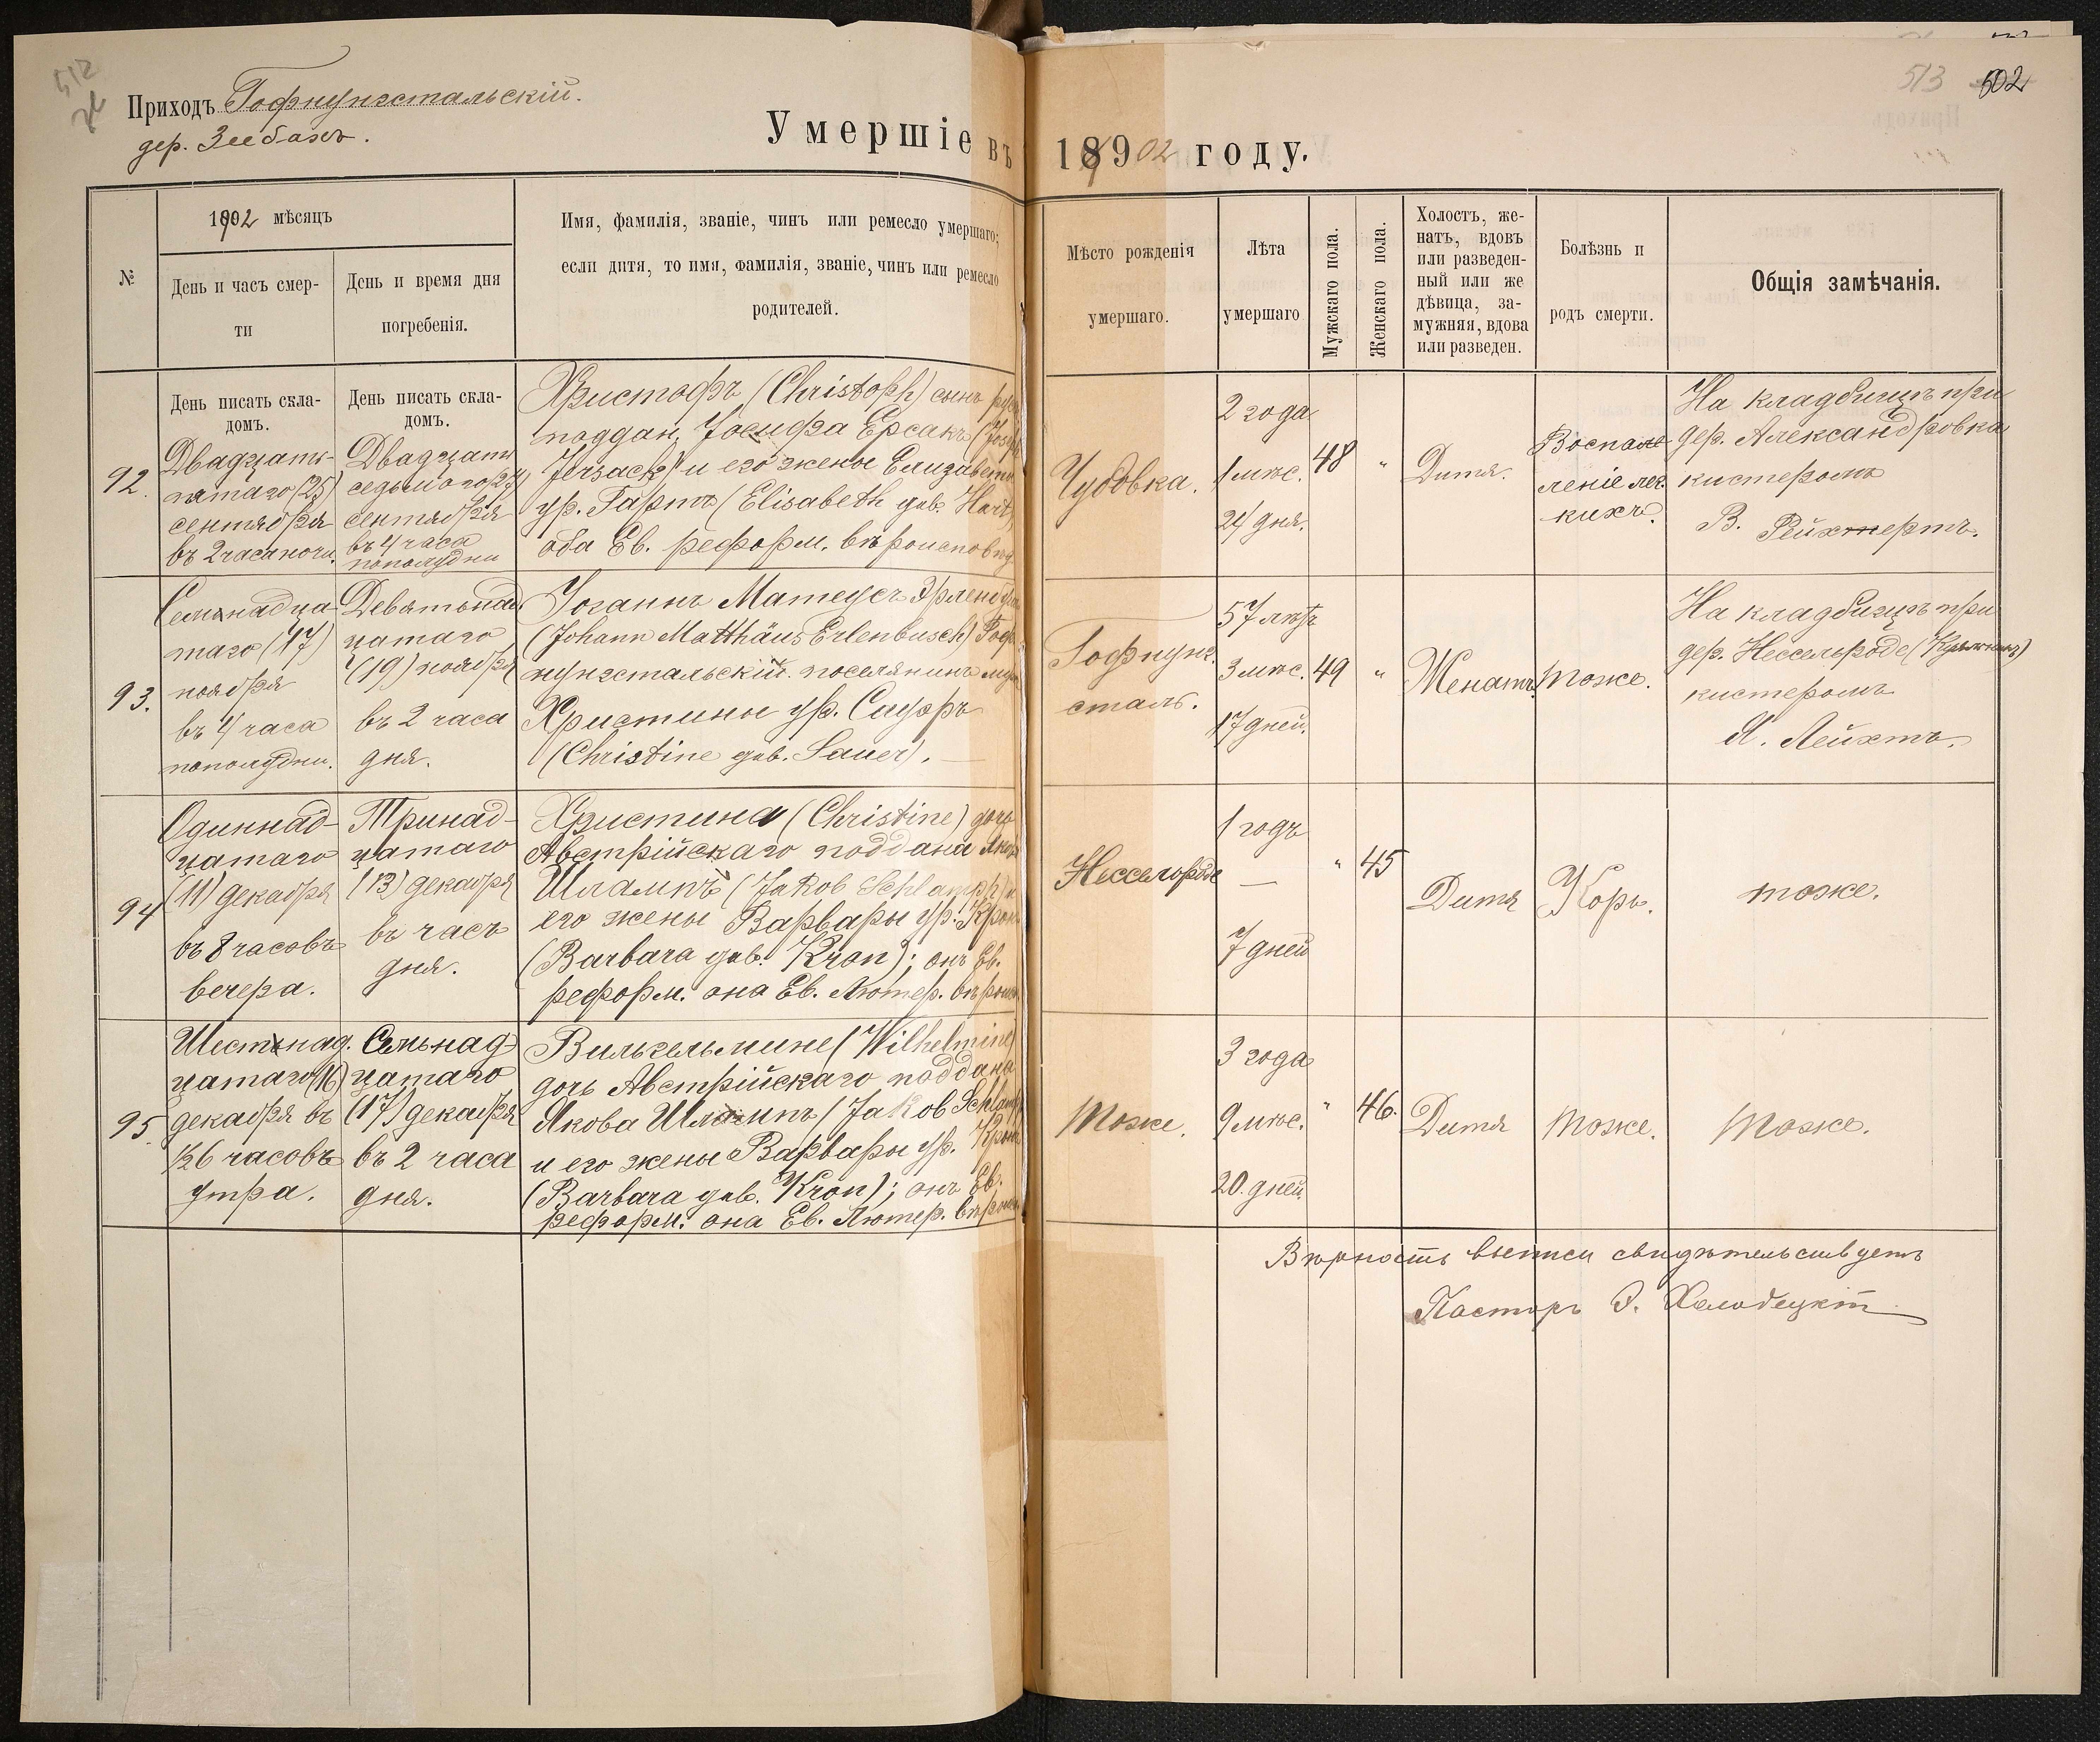 512
Приходъ Гофнунгстальскій.
дер. Зеебахъ.
Умершіе въ
№
1902 мѣсяцъ
День и часъ смер-
ти
День и время дня
погребенія.
Имя, фамилія, званіе, чинъ или ремесло умершаго;
если дитя, то имя, фамилія, званіе, чинъ или ремесло
родителей.
День писать скла-
домъ.
День писать скла-
домъ.
92.
Двадцать-
пятаго (25)
сентября
въ 2 часа ночи.
Двадцать
седьмого (27)
сентября
въ 4 часа
пополудни
Христофъ (Christoph) сынъ
поддан. Іосифа Ерсакъ
Jersack) и его жены
ур. Гартъ (Elisabeth geb.
оба Ев. реформ.
93.
Семнадца-
таго (17)
ноября
въ 4 часа
пополудни.
Девятьнад.
цатаго
(19) ноября
въ 2 часа
дня.
Іоганнъ Матеусъ
(Johann Matthäus Erlenbusch) Гоф
нунгстальскій поселянинъ
Христины ур. Сауеръ
(Christine geb. Sauer).
94
Одиннад-
цатаго
(11) декабря
въ 8 часовъ
вечера.
Тринад-
цатаго
(13) декабря
въ часъ
дня.
Христина (Christine) дочь
Австрійскаго поддана
Шлампъ (Jakob Schlampp) и
его жены Варвары ур. Крон
(Barbara geb. Kron); онъ Ев.
реформ. она Ев. Лютер.
95.
Шестнад.
цатаго (16)
декабря въ
½6 часовъ
утра.
Семьнад-
цатаго
(17) декабря
въ 2 часа
дня.
Вильгельмине (Wilhelmine)
дочь Австрійскаго поддана
Якова Шлампъ (Jakob
и его жены Варвары ур. Крон
(Barbara geb. Kron); онъ Ев.
реформ. она Ев. Лютер.
513 502
1902 году.
Мѣсто рожденія
умершаго.
Лѣта
умершаго
Мужскаго пола.
Женскаго пола.
Холостъ, же-
натъ, вдовъ
или разведен-
ный или же
дѣвица, за-
мужняя, вдова
или разведен.
Болѣзнь и
родъ смерти.
Общія замѣчанія.
Чубовка.
2 года
1 мѣс.
24 дня.
48
"
Дитя.
Воспале
леніе лег.
кихъ.
На кладбищѣ при
дер. Александровка
кистеромъ
В. Рейхертъ.
Гофнунг.
сталь.
57 лѣтъ
3 мѣс.
17 дней.
49
"
Женатъ.
тоже.
На кладбищѣ при
дер. Нессельроде
кистеромъ
Я. Лейхтъ.
Нессельроде
1 годъ
—
7 дней
"
45
Дитя
Корь.
тоже.
тоже.
3 года
9 мѣс.
20. дней
"
46.
Дитя
тоже.
тоже.
Вѣрность выписи свидѣтельствуетъ
Пасторъ Э. Холодецкій